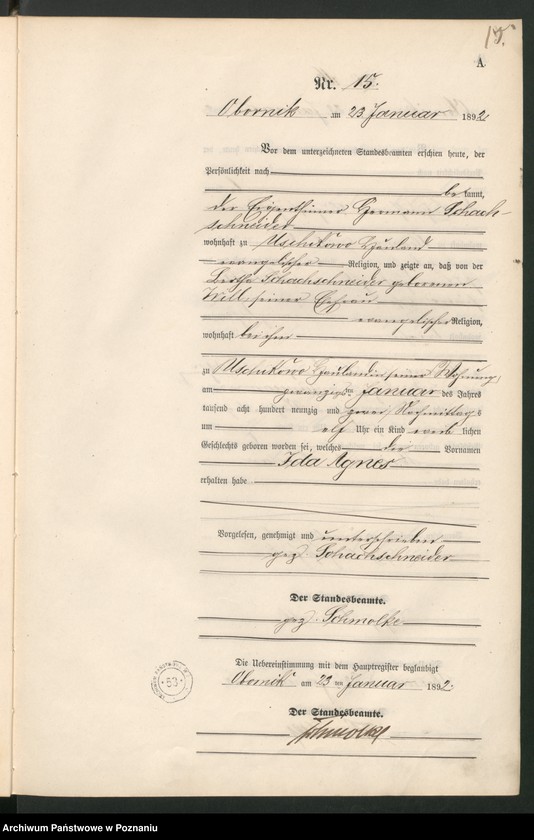 15.
A
Nr. 15.
Obornik am 23 Januar 1892
Vor dem unterzeichneten Standesbeamten erschien heute, der
Persönlichkeit nach
be kannt,
der Eigenthümer Hermann Schach-
schneider
wohnhaft zu Uschikowo Hauland
evangelischer Religion, und zeigte an, daß von der
Bertha Schachschneider geborenen
Will, seiner Ehefrau
evangelischer Religion,
wohnhaft bei ihm
zu Uschikowo Hauland in seiner Wohnung,
am zwanzigsten Januar des Jahres
tausend acht hundert neunzig und zwei Nachmittags
um elf Uhr ein Kind weiblichen
Geschlechts geboren worden sei, welches die Vornamen
Ida Agnes
erhalten habe
Vorgelesen, genehmigt und unterschrieben
gez Schachschneider
Der Standesbeamte.
gez. Schmolke
Die Uebereinstimmung mit dem Hauptregister beglaubigt
Obornik am 23 ten Januar 1892.
Der Standesbeamte.
Schmolke
53
Archiwum Państwowe w Poznaniu